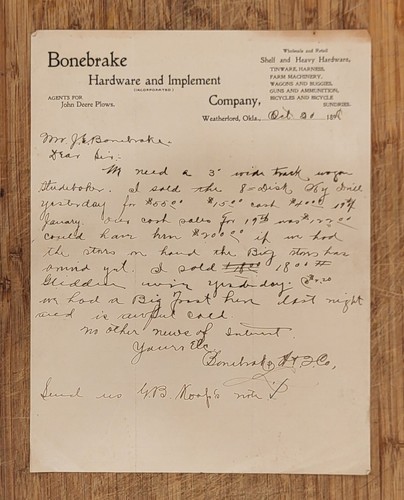 Bonebrake
Hardware and Implement
(INCORPORATED)
Company,
AGENTS FOR
John Deere Plows.
Wholesale and Retail
Shell and Heavy Hardware,
TINWARE, HARNESS,
FARM MACHINERY,
WAGONS AND BUGGIES,
GUNS AND AMMUNITION,
BICYCLES AND BICYCLE
SUNDRIES.
Weatherford, Okla., Oct. 20 189
Mr. J.E. Bonebrake.
Dear Sir.
We need a 3" wide track wagon
Studebaker. I sold the 8-Disk Drill
yesterday for $55.00 $15.00 cash $40.00 1st
January our cash sales for 19th was $122.00
could have been $200.00 if we had
the stove on hand the Big stove has
arrived yet. I sold 18.00
Glidden wire yesterday. @ 4.20
we had a Big Frost here last night
and is awful cold
no other news of Interest
Yours Etc
Bonebrake H & I Co,
Send us G.B. note